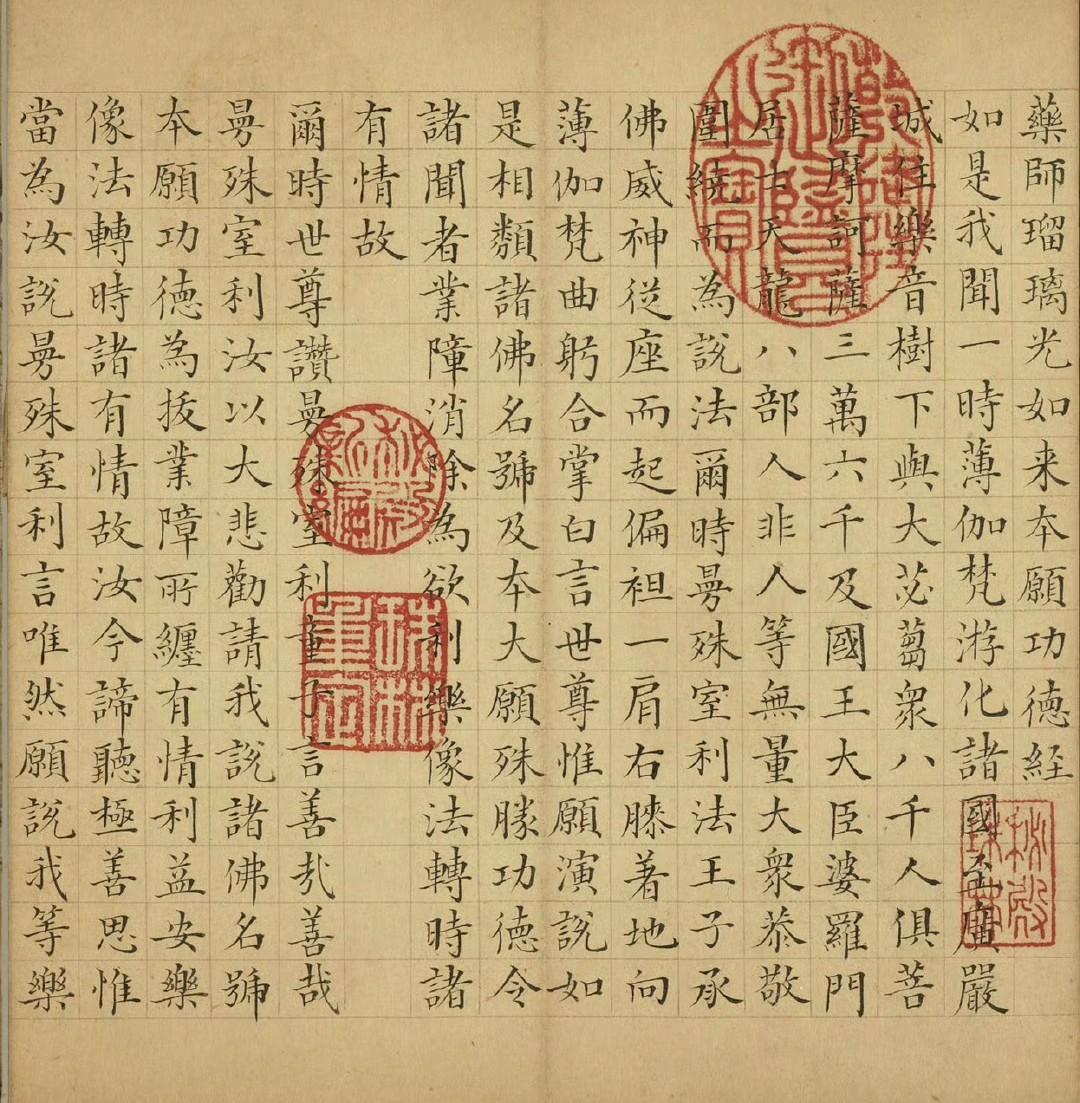 藥師瑠璃光如来本願功德経
如是我聞一時薄伽梵游化諸國至廣嚴
城住樂音樹下與大苾蒭衆八千人俱菩
薩摩訶薩三萬六千及國王大臣婆羅門
居士天龍八部人非人等無量大衆恭敬
圍繞而為說法爾時曼殊室利法王子承
佛威神從座而起偏袒一肩右膝著地向
薄伽梵曲躬合掌白言世尊惟願演說如
是相類諸佛名號及本大願殊勝功德令
諸聞者業障消除為欲利樂像法轉時諸
有情故
爾時世尊讚曼殊室利童子言善哉善哉
曼殊室利汝以大悲勸請我說諸佛名號
本願功德為拔業障所纏有情利益安樂
像法轉時諸有情故汝今諦聽極善思惟
當為汝說曼殊室利言唯然願說我等樂
乾隆御覽之寶
秘殿珠林
秘殿新編
珠林重定